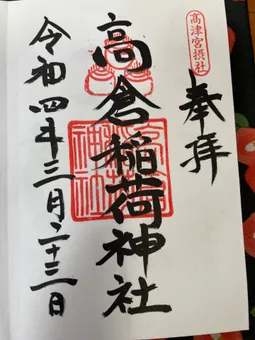 高津宮摂社
奉拝
高倉稲荷神社
令和四年三月二十三日